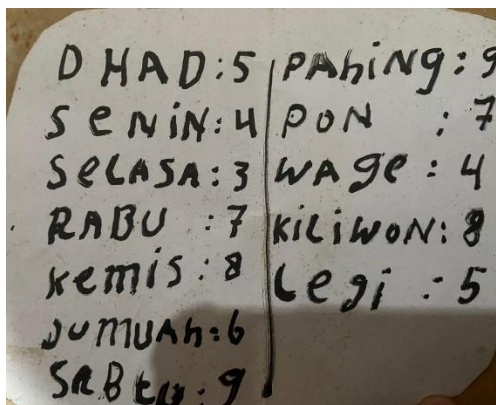 DHAD:5
SeNiN:4
SeLASA:3
RABU :7
Kemis:8
JUMUAh:6
SABtU:9
PAhiNg:9
PON :7
WAge:4
KiLiWON:8
Legi:5